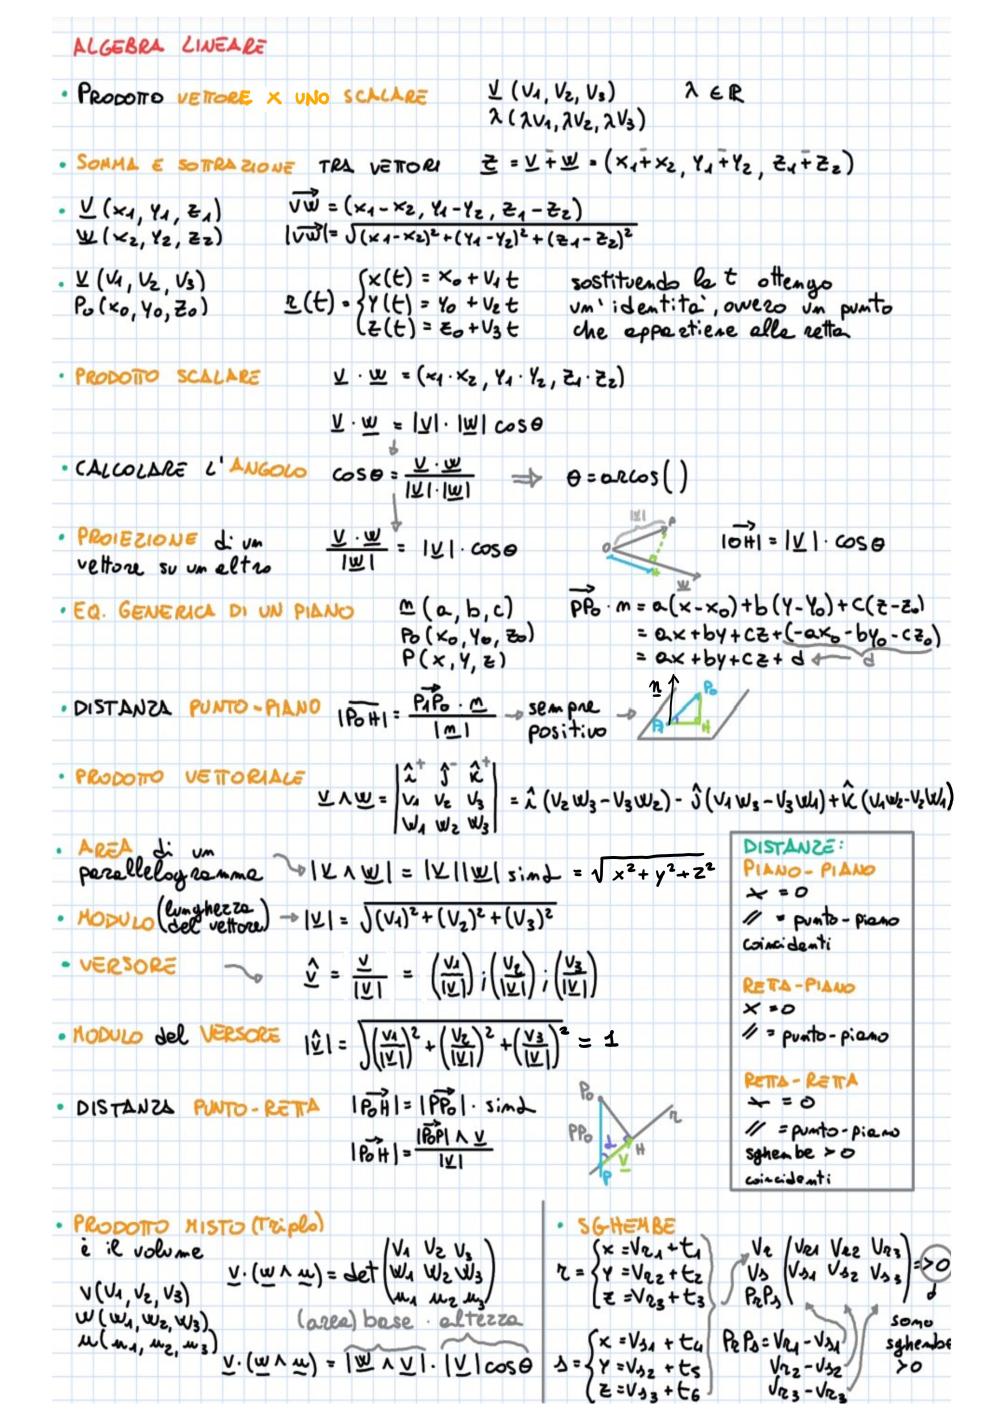 ALGEBRA LINEARE
• PRODOTTO VETTORE X UNO SCALARE V (V1, V2, V3) λ ∈ R
λ (λV1, λV2, λV3)
• SOMMA E SOTTRAZIONE TRA VETTORI Z = V ∓ W = (X1 ∓ X2, Y1 ∓ Y2, Z1 ∓ Z2)
• V (X1, Y1, Z1) VW = (X1-X2, Y1-Y2, Z1-Z2)
W (X2, Y2, Z2) |VW| = √(X1-X2)² + (Y1-Y2)² + (Z1-Z2)²
• V (V1, V2, V3) { X(t) = X0 + V1 t sostituendo la t ottengo
P0 (X0, Y0, Z0) r(t) = { Y(t) = Y0 + V2 t un' identità, ovvero un punto
{ Z(t) = Z0 + V3 t che appartiene alla retta
• PRODOTTO SCALARE V · W = (X1 · X2, Y1 · Y2, Z1 · Z2)
V · W = |V| · |W| cosθ
• CALCOLARE L'ANGOLO cosθ = V · W / |V|·|W| ⇒ θ = arcos( )
• PROIEZIONE di un V · W / |W| = |V| · cosθ |V| P O W |OH| = |V| · cosθ
vettore su un altro
• EQ. GENERICA DI UN PIANO n (a, b, c) PP0 · n = a(x-x0) + b(Y-Y0) + c(z-z0)
P0 (X0, Y0, Z0) = ax + by + cz + (-ax0 - by0 - cz0)
P (X, Y, Z) = ax + by + cz + d ← d
• DISTANZA PUNTO-PIANO |P0H| = P1P0 · n / |n| → sempre positivo → n P0 A H
• PRODOTTO VETTORIALE V ∧ W = | î⁺ ĵ⁻ k̂⁺ |
| V1 V2 V3 | = î (V2W3 - V3W2) - ĵ (V1W3 - V3W1) + k̂ (V1W2 - V2W1)
| W1 W2 W3 |
• AREA di un
parallelogramma → |V ∧ W| = |V||W| sinα = √x² + y² + z²
• MODULO (lunghezza del vettore) → |V| = √(V1)² + (V2)² + (V3)²
• VERSORE → V̂ = V / |V| = (V1/|V|) ; (V2/|V|) ; (V3/|V|)
• MODULO del VERSORE |V̂| = √(V1/|V|)² + (V2/|V|)² + (V3/|V|)² = 1
• DISTANZA PUNTO-RETTA |P0H| = |PP0| · sinα
|P0H| = |P0P| ∧ V / |V|
P0 PP0 α H r V P
DISTANZE:
PIANO-PIANO
X = 0
// = punto-piano
coincidenti
RETTA-PIANO
X = 0
// = punto-piano
RETTA-RETTA
X = 0
// = punto-piano
sghembe > 0
coincidenti
• PRODOTTO MISTO (Triplo)
è il volume
V (V1, V2, V3)
W (W1, W2, W3)
u (u1, u2, u3)
V · (W ∧ u) = det ( V1 V2 V3
W1 W2 W3
u1 u2 u3 )
(area) base · altezza
V · (W ∧ u) = |W ∧ V| · |V| cosθ
• SGHEMBE
r = { X = Vr1 + t1
Y = Vr2 + t2
Z = Vr3 + t3
s = { X = Vs1 + t4
Y = Vs2 + t5
Z = Vs3 + t6
Vr ( Vr1 Vr2 Vr3
Vs Vs1 Vs2 Vs3 ) = >0
PrPs
d
sono
sghembe
>0
PrPs = Vr1 - Vs1
Vr2 - Vs2
Vr3 - Vr3